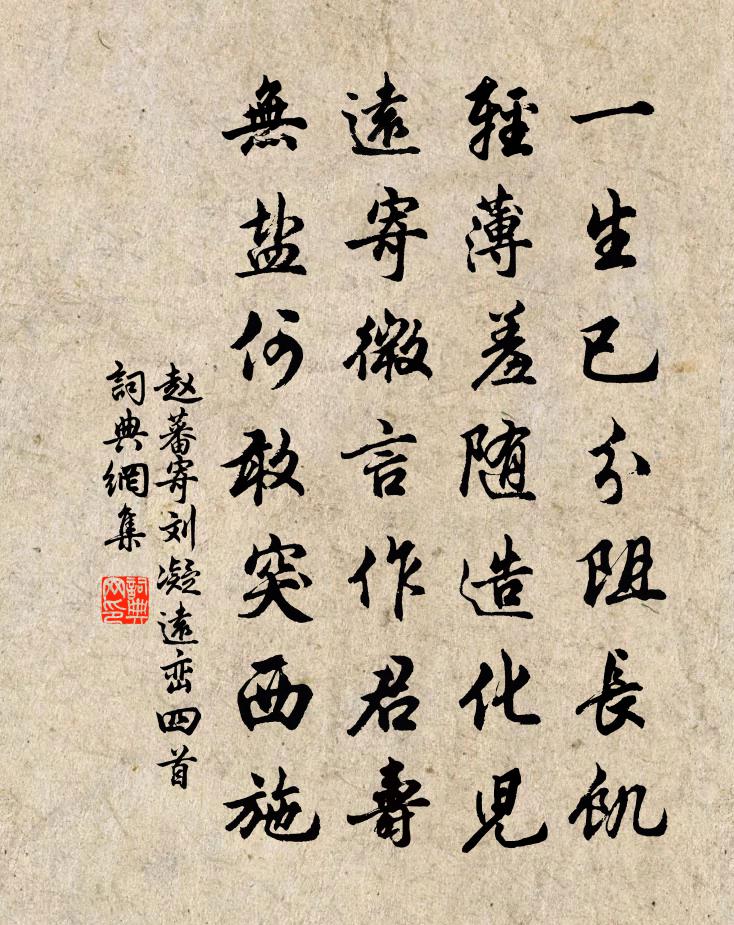 一生已分阻長飢
輕薄羞随造化兒
遠寄微言作君壽
無盐何敢突西施
赵蕃寄刘凝遠峦四首
詞典網集
詞典
网印